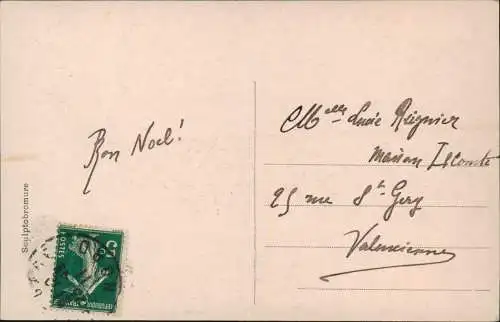 Bon Noël!
Melle Lucie Régnier
maison Lecomte
25 rue St Géry
Valenciennes
Sculptobromure
5 c
POSTES